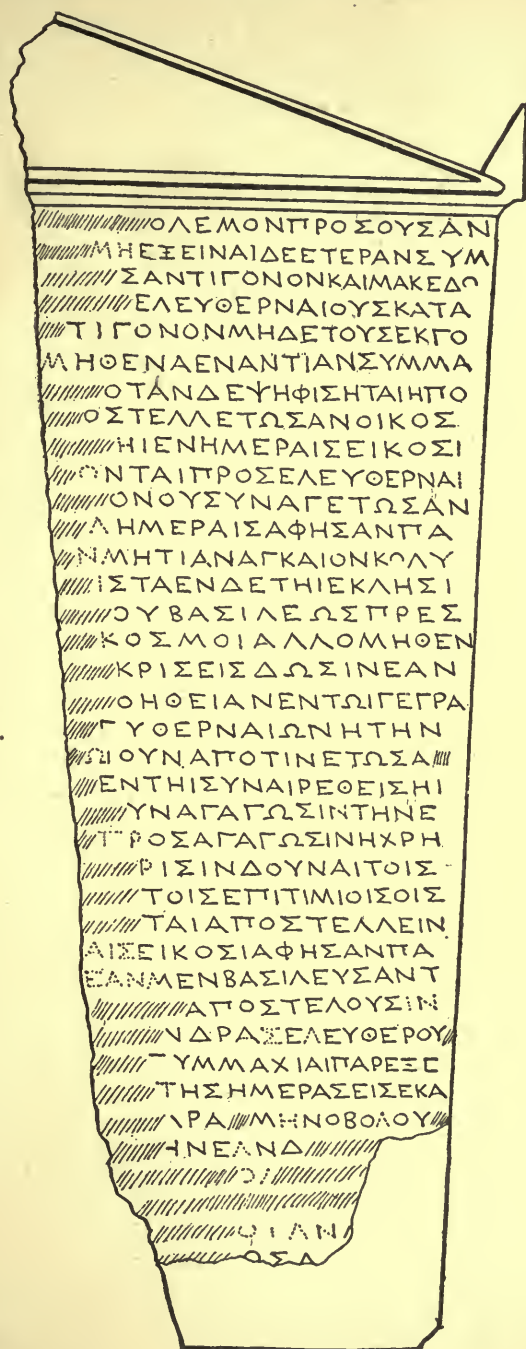 ΟΛΕΜΟΝΠΡΟΣΟΥΣΑΝ
ΜΗΕΞΕΙΝΑΙΔΕΕΤΕΡΑΝΣΥΜ
ΣΑΝΤΙΓΟΝΟΝΚΑΙΜΑΚΕΔΟ
ΕΛΕΥΘΕΡΝΑΙΟΥΣΚΑΤΑ
ΤΙΓΟΝΟΝΜΗΔΕΤΟΥΣΕΚΓΟ
ΜΗΘΕΝΑΕΝΑΝΤΙΑΝΣΥΜΜΑ
ΟΤΑΝΔΕΨΗΦΙΣΗΤΑΙΗΠΟ
ΟΣΤΕΛΛΕΤΩΣΑΝΟΙΚΟΣ
ΗΙΕΝΗΜΕΡΑΙΣΕΙΚΟΣΙ
ΩΝΤΑΙΠΡΟΣΕΛΕΥΘΕΡΝΑΙ
ΟΝΟΥΣΥΝΑΓΕΤΩΣΑΝ
ΛΗΜΕΡΑΙΣΑΦΗΣΑΝΠΑ
ΝΜΗΤΙΑΝΑΓΚΑΙΟΝΚΩΛΥ
ΙΣΤΑΕΝΔΕΤΗΙΕΚΛΗΣΙ
ΟΥΒΑΣΙΛΕΩΣΠΡΕΣ
ΚΟΣΜΟΙΑΛΛΟΜΗΘΕΝ
ΚΡΙΣΕΙΣΔΩΣΙΝΕΑΝ
ΟΗΘΕΙΑΝΕΝΤΩΙΓΕΓΡΑ
ΥΘΕΡΝΑΙΩΝΗΤΗΝ
ΩΙΟΥΝΑΠΟΤΙΝΕΤΩΣΑ
ΕΝΤΗΙΣΥΝΑΙΡΕΘΕΙΣΗΙ
ΥΝΑΓΑΓΩΣΙΝΤΗΝΕ
ΠΡΟΣΑΓΑΓΩΣΙΝΗΧΡΗ
ΡΙΣΙΝΔΟΥΝΑΙΤΟΙΣ
ΤΟΙΣΕΠΙΤΙΜΙΟΙΣΟΙΣ
ΤΑΙΑΠΟΣΤΕΛΛΕΙΝ
ΑΙΣΕΙΚΟΣΙΑΦΗΣΑΝΠΑ
ΕΑΝΜΕΝΒΑΣΙΛΕΥΣΑΝΤ
ΑΠΟΣΤΕΛΟΥΣΙΝ
ΝΔΡΑΣΕΛΕΥΘΕΡΟΥ
ΥΜΜΑΧΙΑΙΠΑΡΕΞΕ
ΤΗΣΗΜΕΡΑΣΕΙΣΕΚΑ
ΡΑ ΜΗΝΟΒΟΛΟΥ
ΗΝΕΑΝΔ
ΙΑΝ
ΟΣΔ